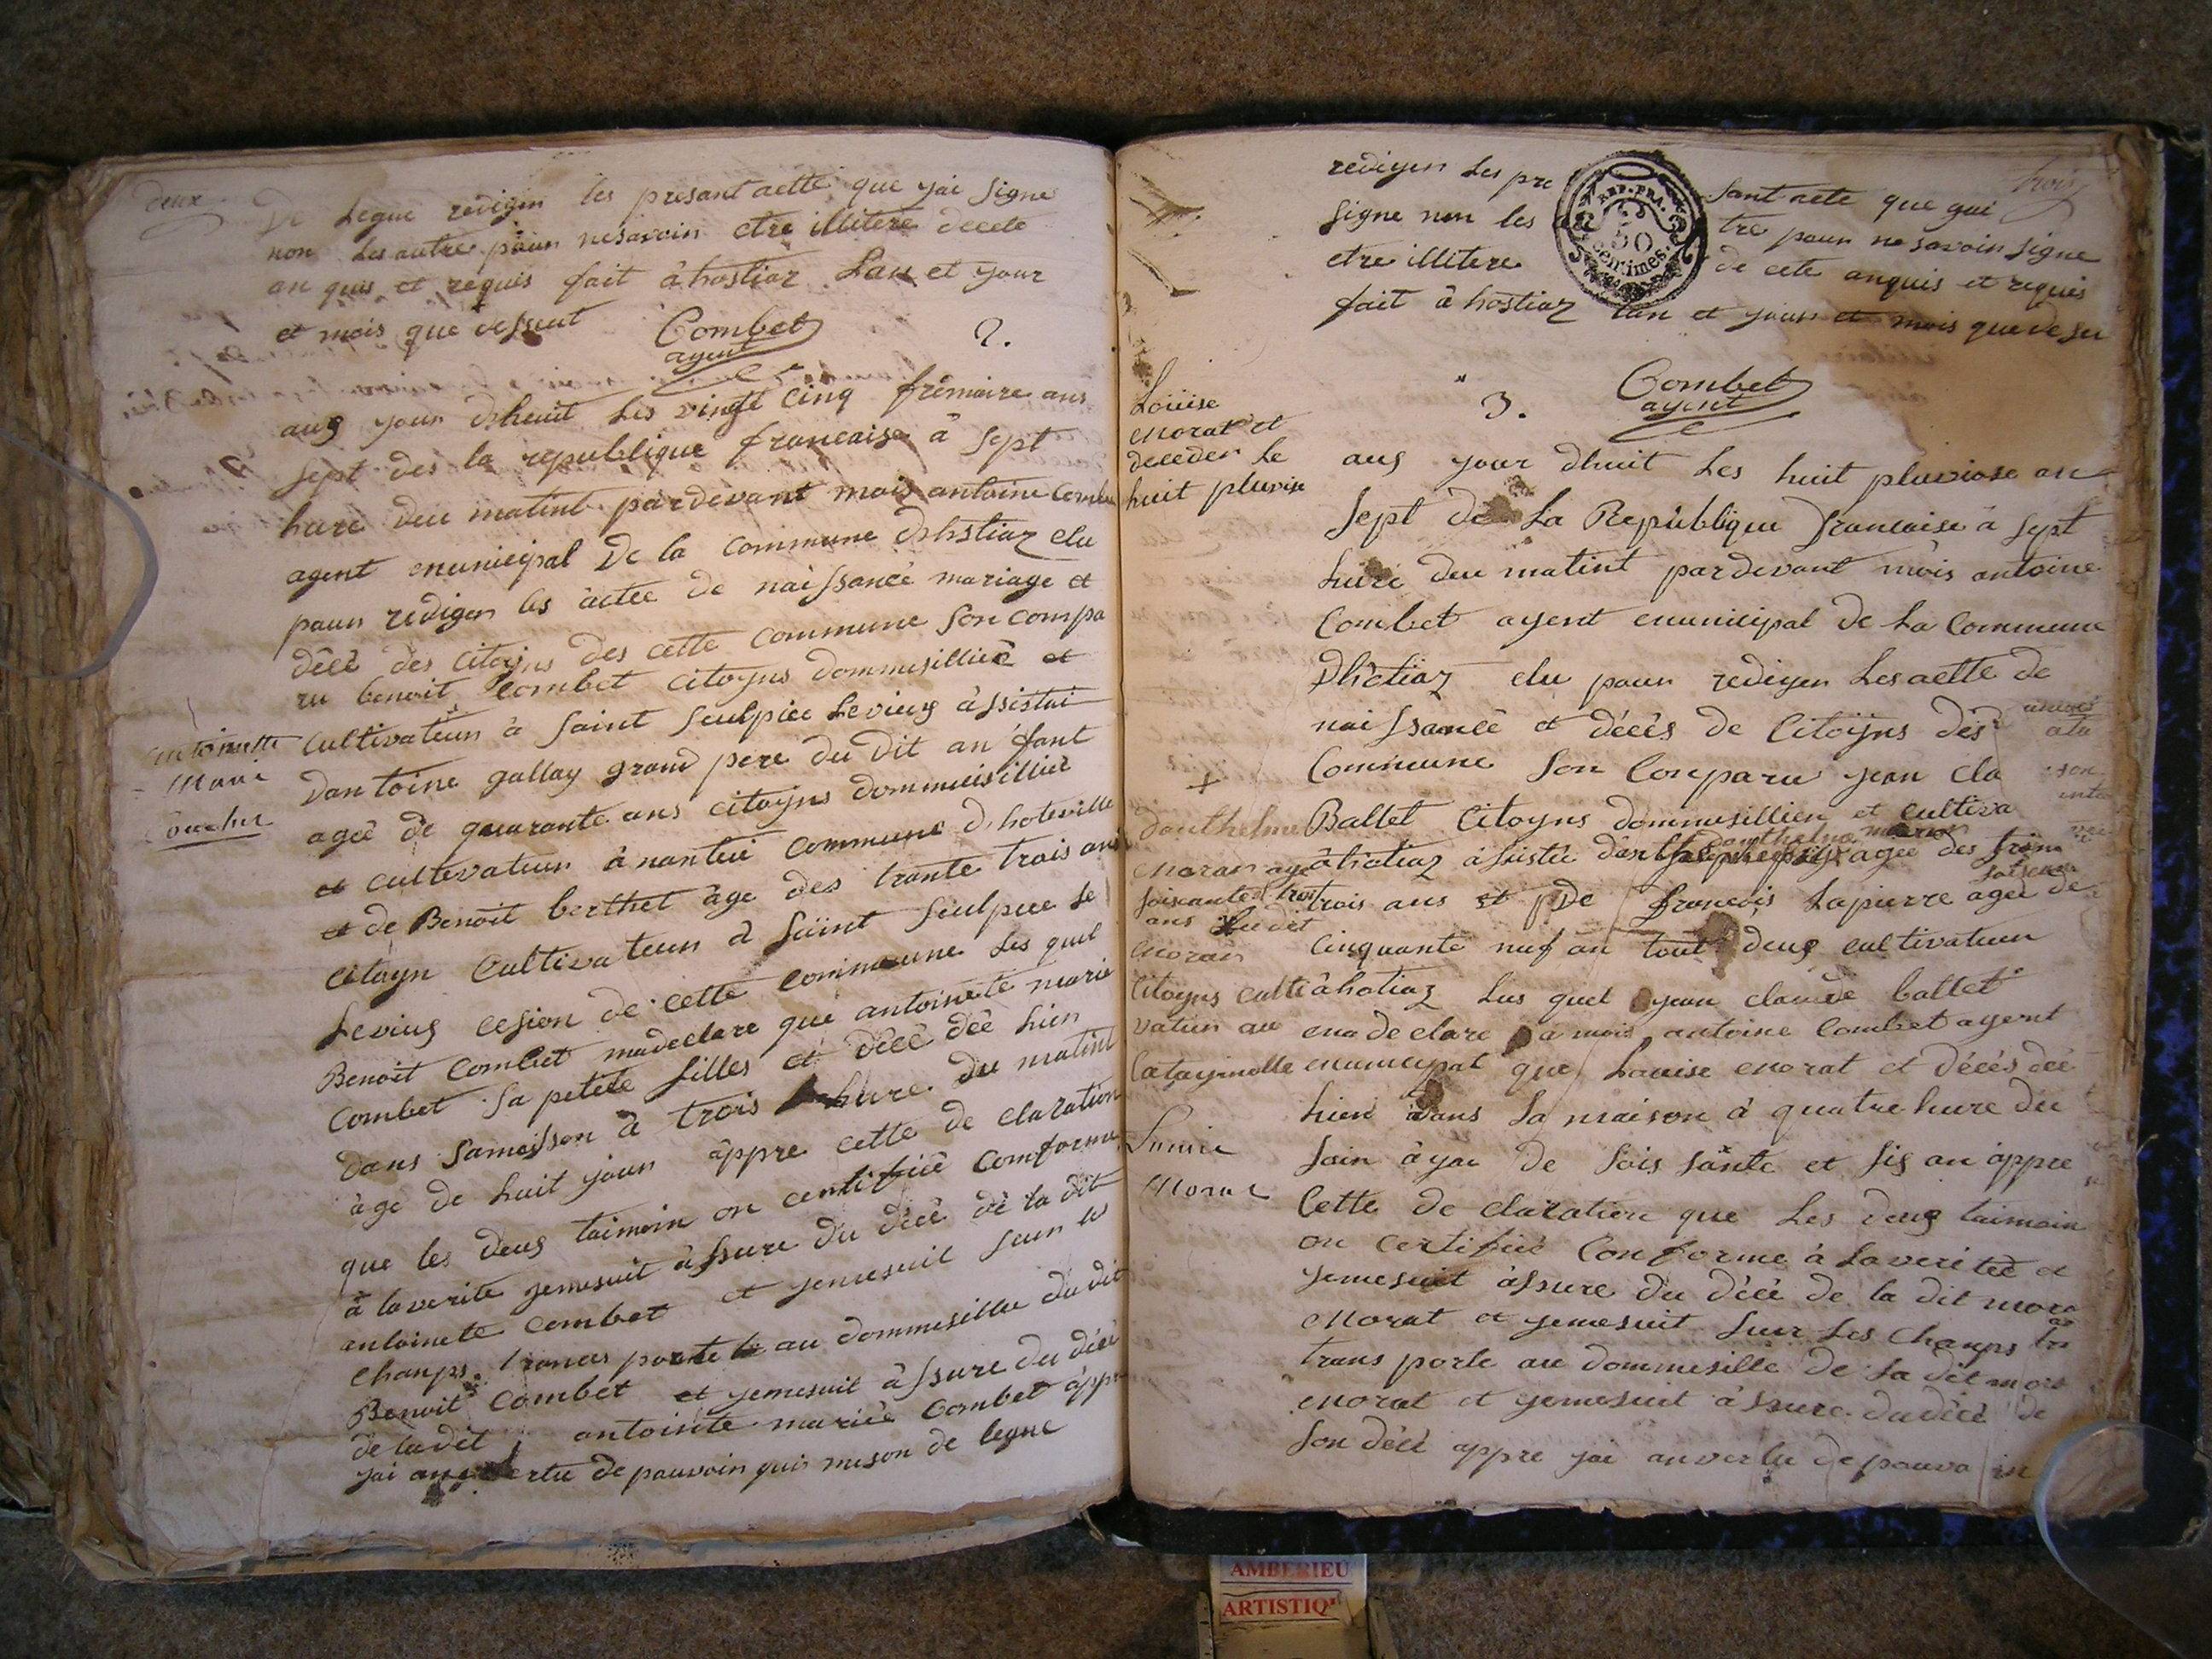 deux
De Legue redigen les presant aette que jai Signe
non Les autre paun nesavoin etre illitere decete
an quis et requis fait à hostiaz Lan et jour
et mois que desseut
Combet
agent
2.
aug jour dheuit Les vingt Cinq frémaire ans
Sept des la republique francaise à Sept
hure deu matint pardevant mois antoine Combet
agent municipal De la Commune dhostiaz elu
paun redigen les àctee de naissancè mariage et
dêcê des Citoyns des cette Commune Son Compa
ru benoit Combet Citoyns dommisilliéè et
Cultivateun à Saint Seulpice Levieug àssistai
Dantoine gallay grand pere du dit an fant
ageé de quarante ans citoyns dommisilliet
et cultevateun à nanteui Commune dhoteville
et de Benoit berthet àge des trante trois ans
Citoyn Cultivateun à Saint Seulpice Le
Levieug cesion de cette Commeune Les quel
Benoit Combet madeclare que antoinete marie
Combet Sa petite filles et décê déé hien
dans Samaisson à trois hure du matint
àge de huit joun àppre cette de claration
que les deus taimoin on centifiéè Comforme
à laverite jemesuit àssure du décê de la dit
antoinete Combet et jemesuit seun Le
Champs trances porte au dommisille du dit
Benoit Combet et jemesuit àssure du décê
de ladit antoinete mariéè Combet àppre
jai an vertu de pauvoin quis meson de legue
antoinette
Mari
Combet
trois
redigen Les pre sant acte que jai
Signe non les tre paun nesavoin Signe
etre illitere de cete anquis et requis
fait à hostiaz Lan et joun et mois que desu
REP. FRA.
50
centimes.
Combet
agent
3.
Loüise
morat et
deceden Le
huit pluviose
aug jour dhuit Les huit pluviose an
Sept de La Republique francaise à Sept
hure deu matint pardevant mois antoine
Combet agent municipal de La Commune
Dhotiaz elu paun redigen Les aette de
naissancê et décés de Citoÿns des
Commeune Son Conparu jean cla
Ballet Citoyns dommisillien et cultiva
àhotiaz àsistée agée des
trois ans et De francois Lapierre ageé de
Cinquante neuf an tout deug cultivateun
àhotiaz Lus quel jean claude ballet
ma declare à mois antoine Combet agent
municipal que Louise morat et décés déé
hien dans Sa maison à quatre hure deu
Soin à jai de Soissànte et Sis an àppre
Cette de claration que Les deug taimoin
on Certifiéè Conforme à La veritéé et
jemesuit àssure du décê de la dit mora
morat et jemesuit Suir Les Champs
trans porte au dommisille de La dit
morat et jemesuit àssure du décê de
Son décê appre jai anvertu de pauvoin
+
danthelme
moran age
soissante trois
ans Ledit
moran
Citoyns culti
vateun au
Catagmolle
Louise
Morat
AMBERIEU
ARTISTIQ'